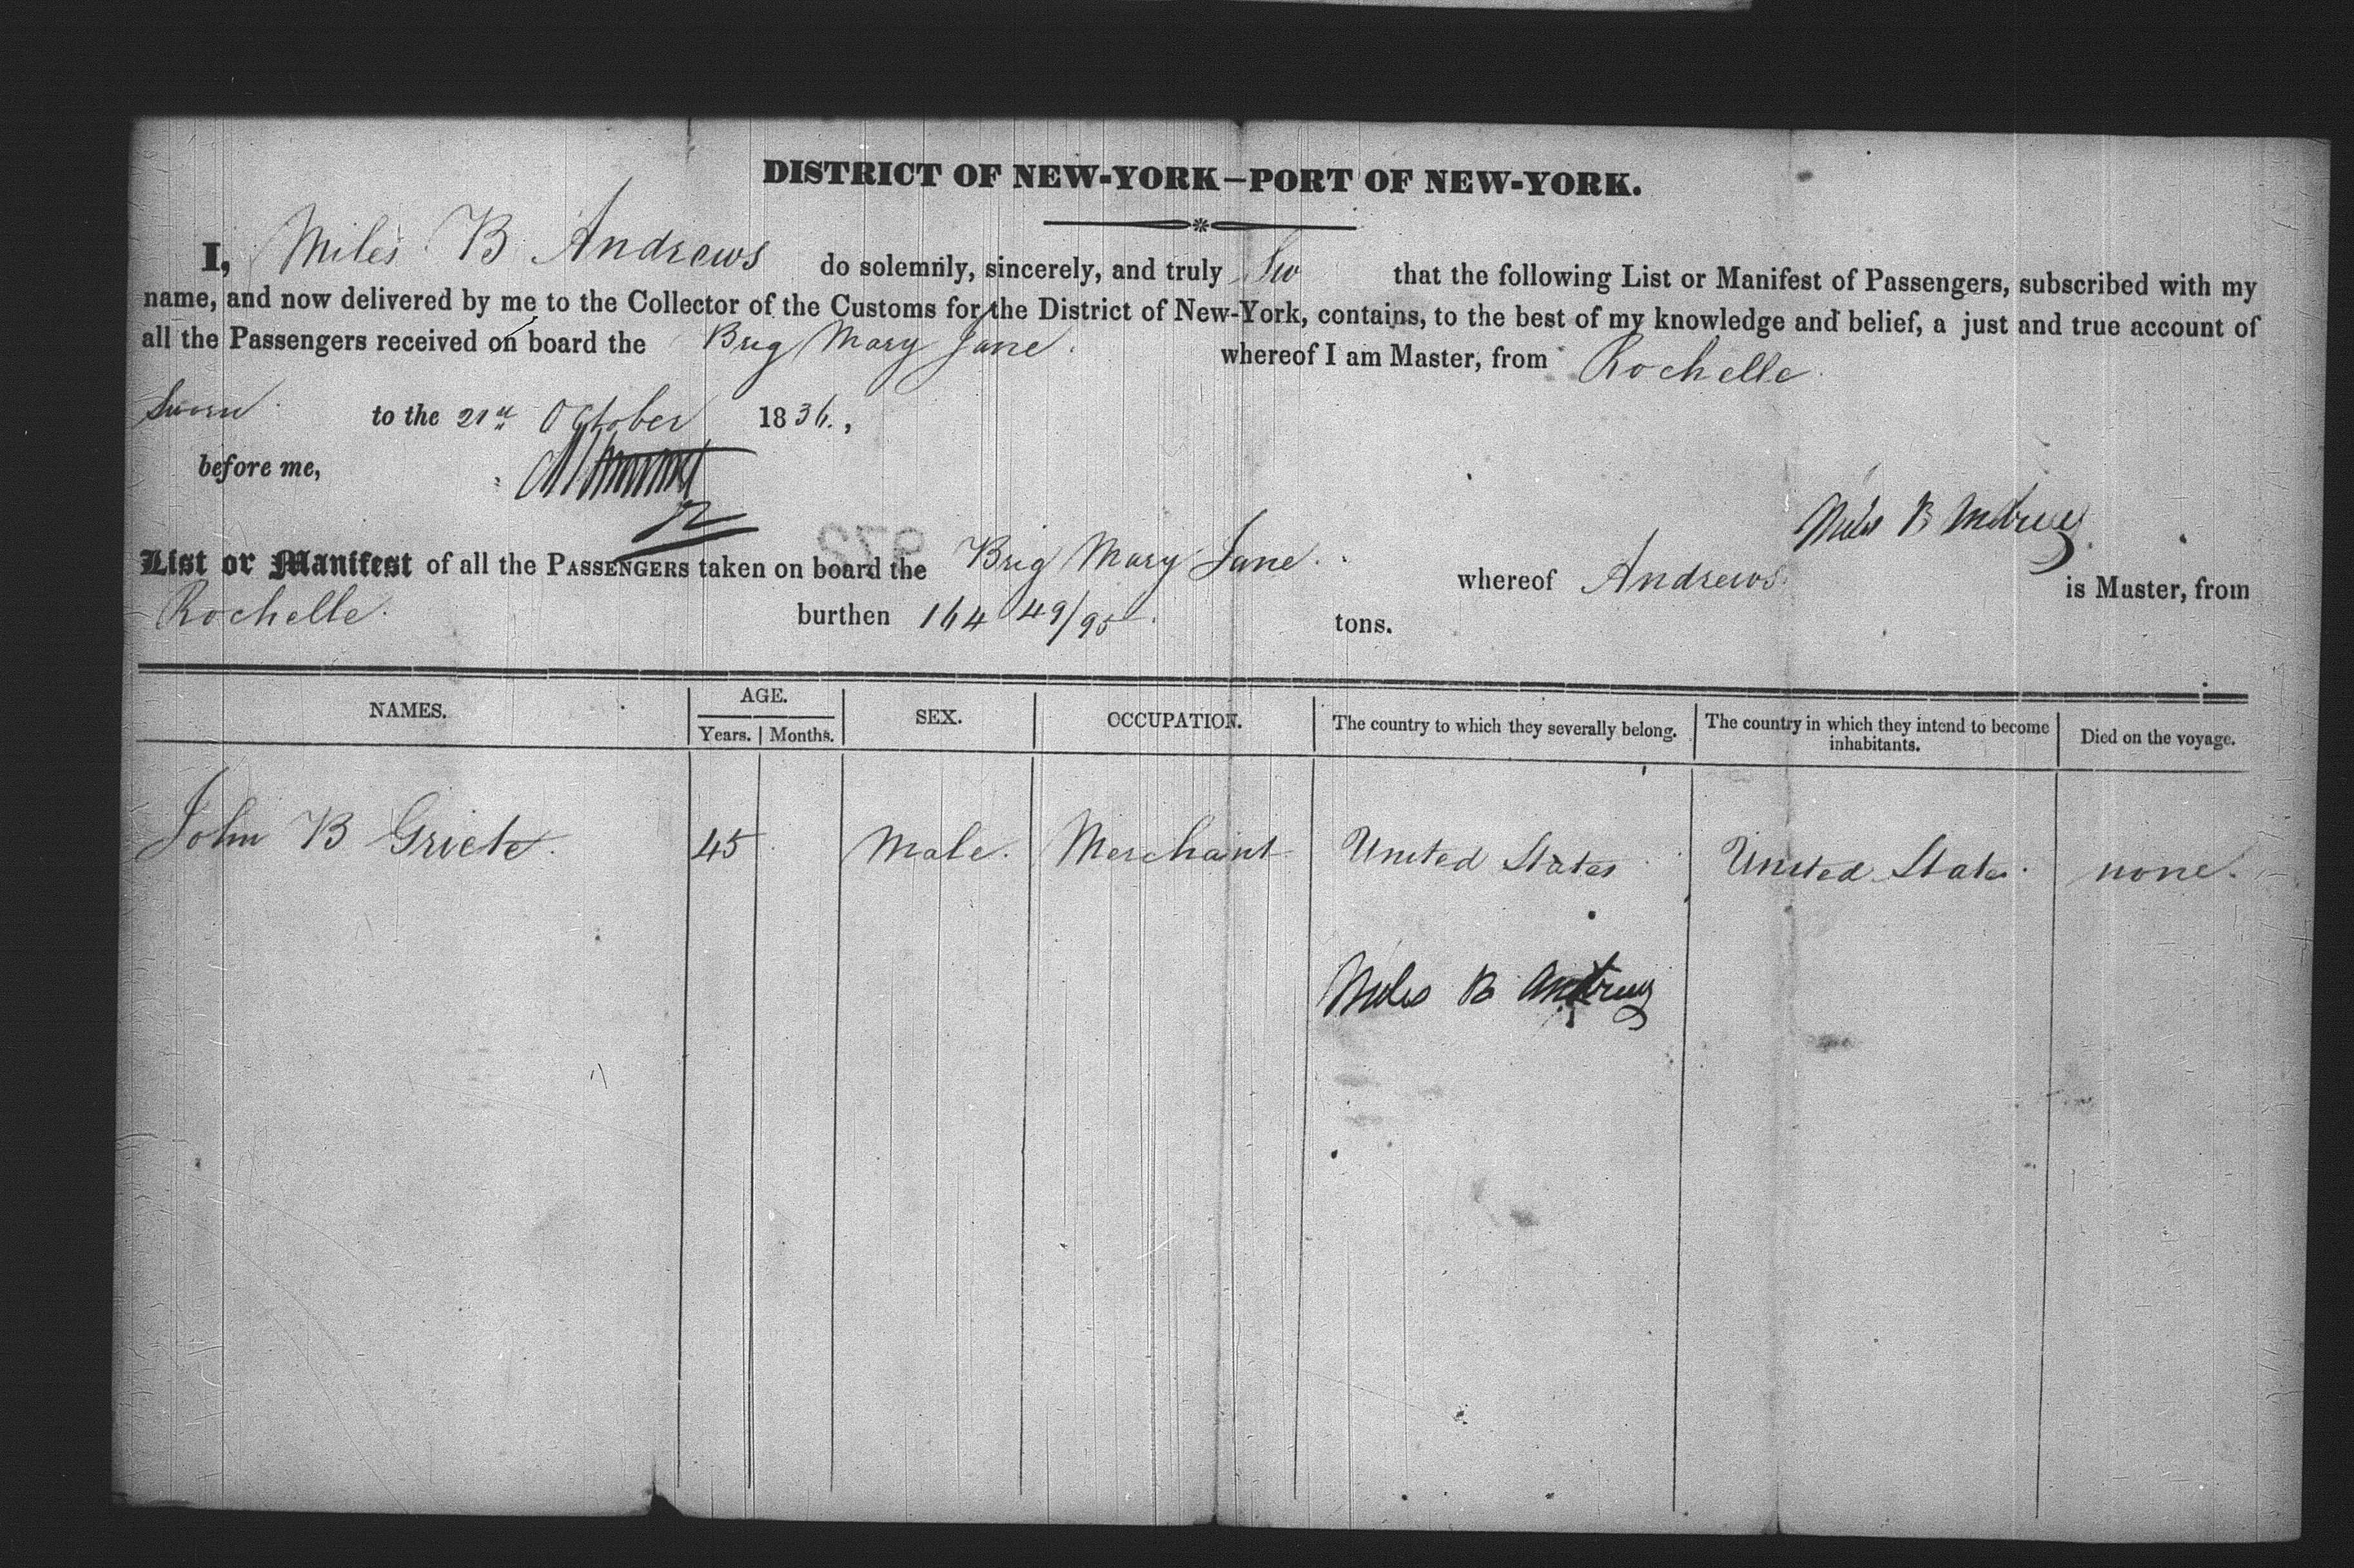 DISTRICT OF NEW-YORK—PORT OF NEW-YORK.
I, Miles B Andrews do solemnly, sincerely, and truly Sw that the following List or Manifest of Passengers, subscribed with my
name, and now delivered by me to the Collector of the Customs for the District of New-York, contains, to the best of my knowledge and belief, a just and true account of
all the Passengers received on board the Brig Mary Jane. whereof I am Master, from Rochelle.
Sworn to the 21st October 1836.,
before me,
Miles B Andrews
972
List or Manifest of all the PASSENGERS taken on board the Brig Mary Jane. whereof Andrews is Master, from
Rochelle. burthen 164 49/95. tons.
NAMES. AGE. SEX. OCCUPATION. The country to which they severally belong. The country in which they intend to become inhabitants. Died on the voyage.
Years. Months.
John B 45 Male. Merchant United States United States. none.
Miles B Andrews